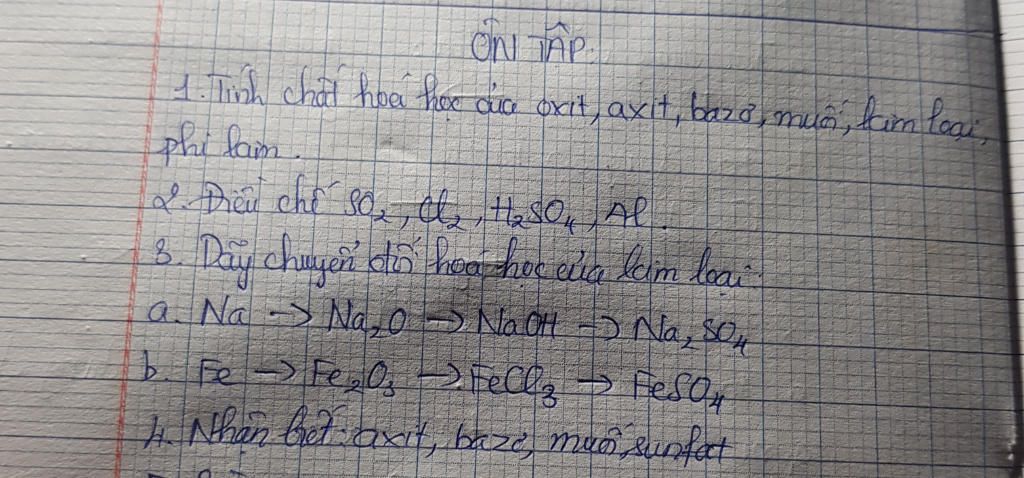 ÔN TẬP.
1. Tính chất hoá học của oxit, axit, bazơ, muối, kim loại,
phi kim.
2. Điều chế SO₂, Cl₂, H₂SO₄, Al.
3. Dãy chuyển đổi hoá học của kim loại:
a. Na → Na₂O → NaOH → Na₂SO₄
b. Fe → Fe₂O₃ → FeCl₃ → FeSO₄
4. Nhận biết: axit, bazơ, muối sunfat